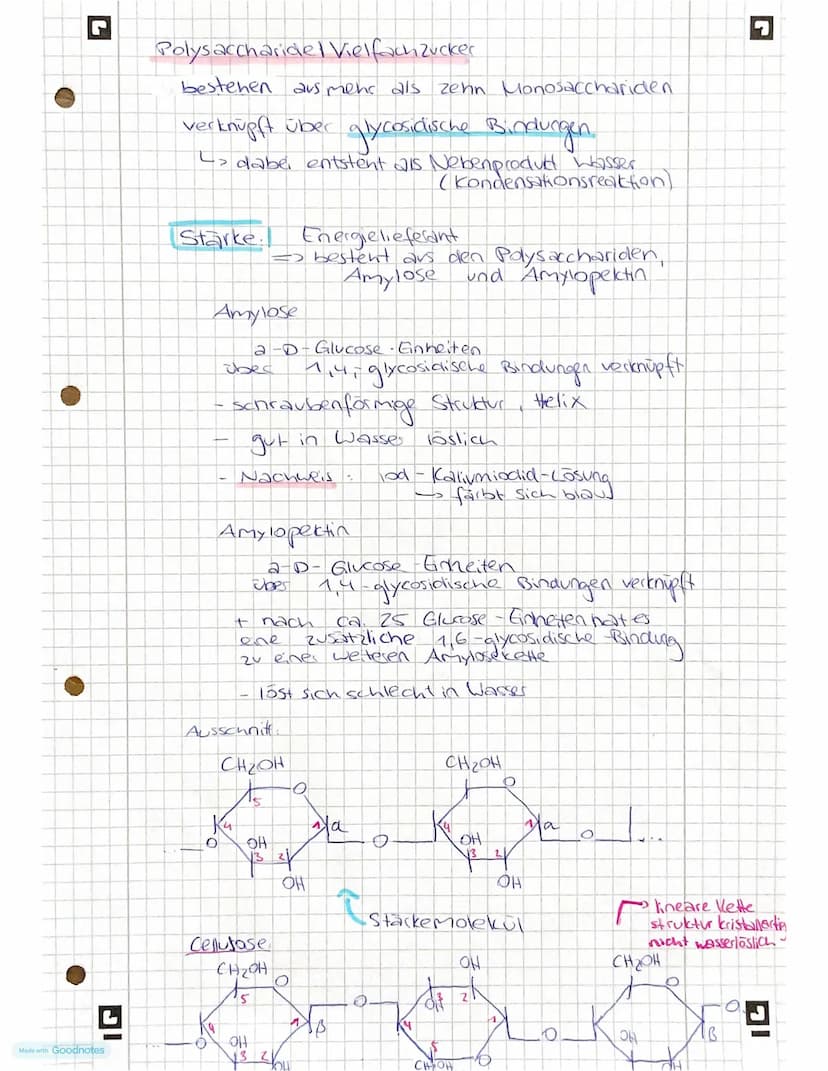 Polysaccharide/Vielfachzucker
bestehen aus mehr als zehn Monosacchariden
verknüpft über glycosidische Bindungen
↳ dabei entsteht als Nebenprodukt Wasser
(Kondensationsreaktion)
Stärke: Energielieferant
=> besteht aus den Polysacchariden,
Amylose und Amylopektin
Amylose
a-D-Glucose-Einheiten
über 1,4,-glycosidische Bindungen verknüpft
- schraubenförmige Struktur, Helix
- gut in Wasser löslich
- Nachweis: Iod-Kaliumiodid-Lösung
→ färbt sich blau
Amylopektin
a-D-Glucose-Einheiten
über 1,4-glycosidische Bindungen verknüpft
+ nach ca. 25 Glucose-Einheiten hat es
eine zusätzliche 1,6-glycosidische-Bindung
zu einer weiteren Amylosekette
- löst sich schlecht in Wasser
Ausschnitt:
CH2OH CH2OH
O O
5
4 1 a 4 1 a
O OH O OH O ...
3 2 3 2
OH OH
Stärkemolekül
lineare Kette
struktur kristallartig
nicht wasserlöslich
Cellulose
CH2OH OH CH2OH
O O
5 3 2 O O
4 1 β OH 4 1 β
O OH O OH
3 2 OH 5 O OH
CH2OH
Made with Goodnotes